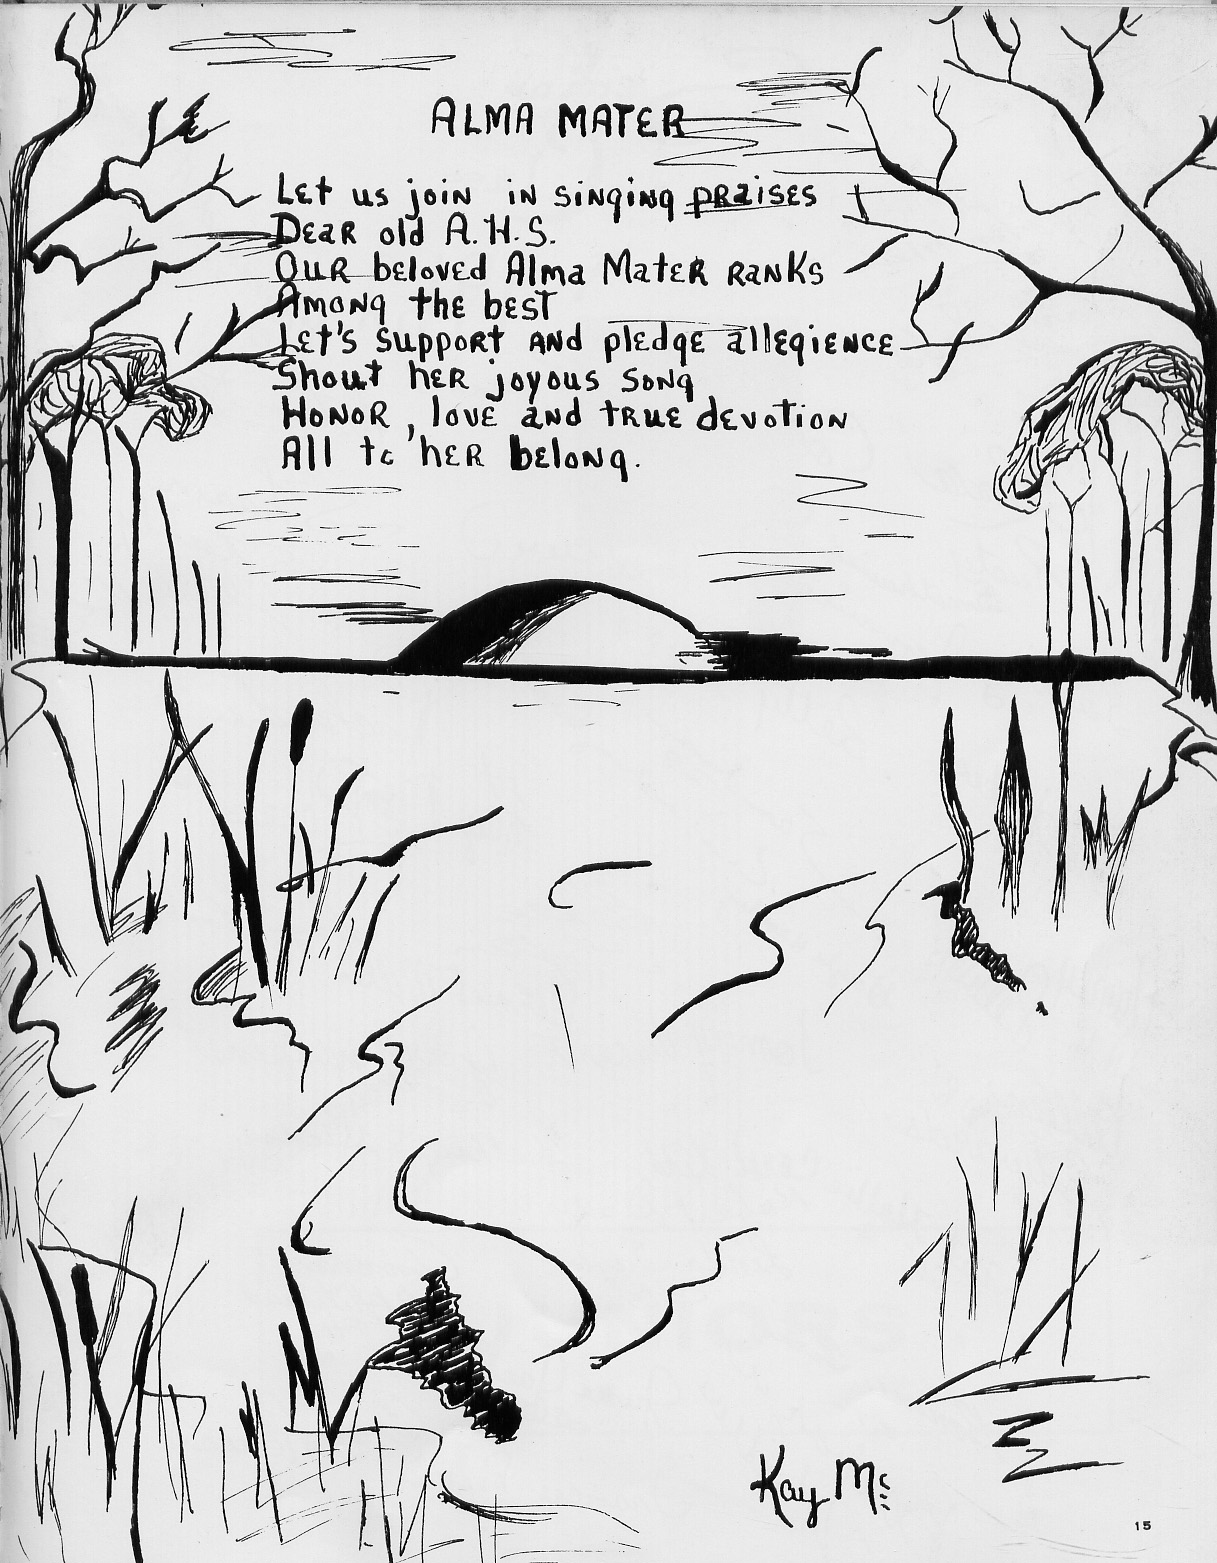 ALMA MATER
Let us join in singing praises
Dear old A.H.S.
Our beloved Alma Mater ranks
Among the best
Let's support and pledge allegience
Shout her joyous song
Honor, love and true devotion
All to her belong.
Kay Mc
15